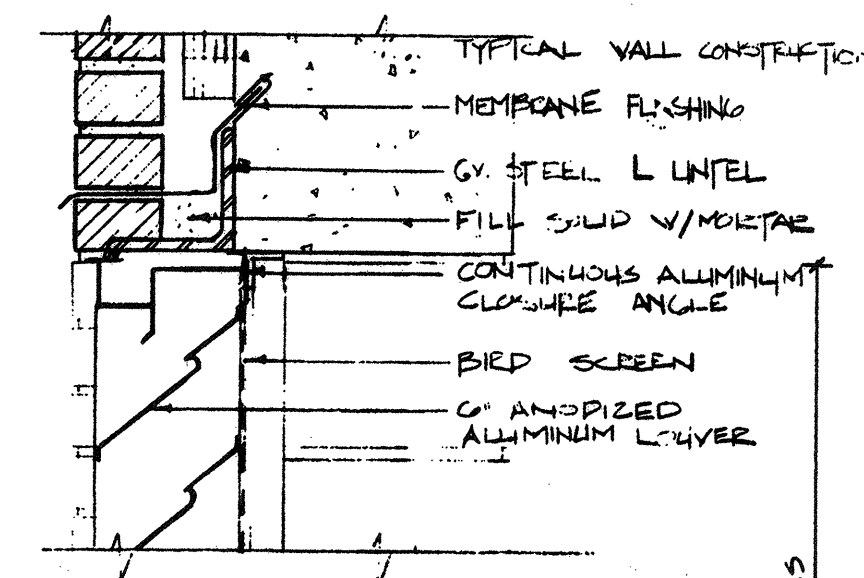 TYPICAL WALL CONSTRUCTION
MEMBRANE FLASHING
STEEL L LINTEL
FILL SOLID W/MORTAR
CONTINUOUS ALUMINUM
CLOSURE ANGLE
BIRD SCREEN
6" ANODIZED
ALUMINUM LOUVER